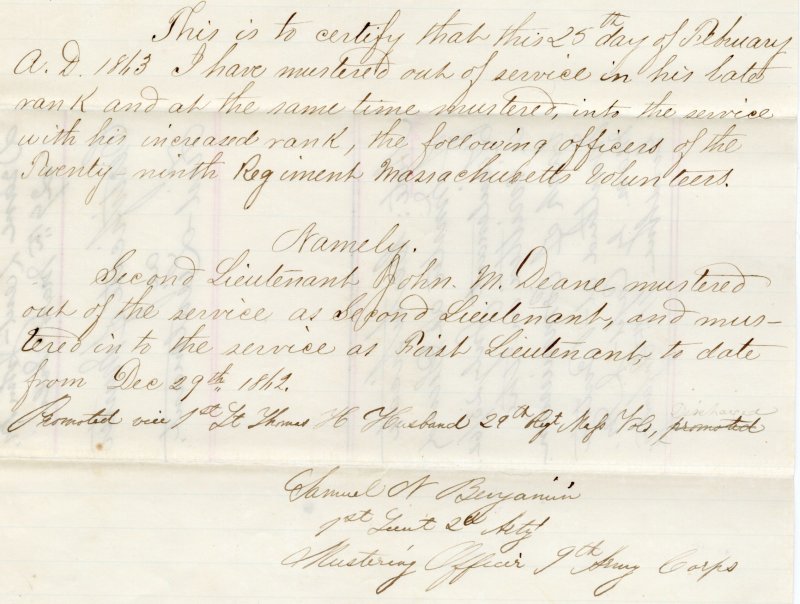 This is to certify that this 25th day of February
A.D. 1863 I have mustered out of service in his late
rank and at the same time mustered, into the service
with his increased rank, the following officers of the
Twenty-ninth Regiment Massachusetts Volunteers.
Namely.
Second Lieutenant John. M. Deane mustered
out of the service as Second Lieutenant, and mus-
tered in to the service as First Lieutenant, to date
from Dec 29th, 1862.
discharged
Promoted vice 1st Lt Thomas H Husband 29th Regt Mass Vols, promoted
Samuel N Benjamin
1st Lieut 2d Arty
Mustering Officer 9th Army Corps